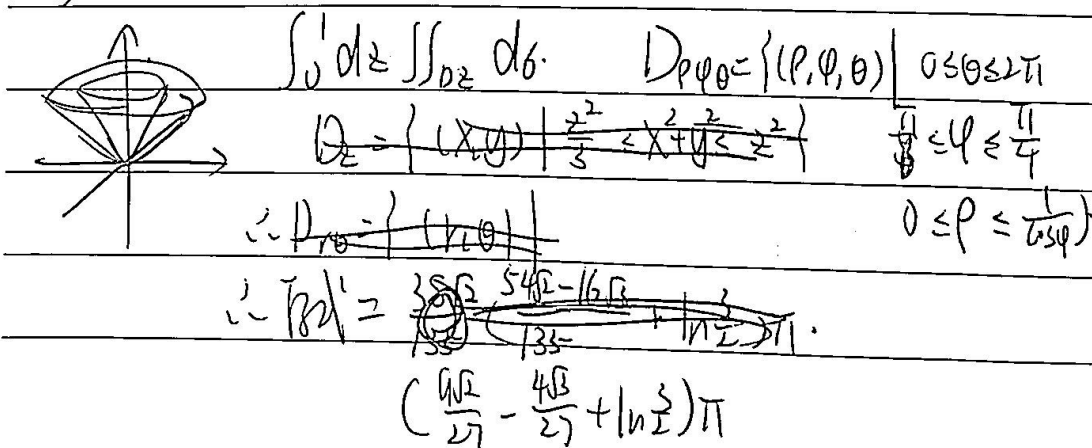 ∫₀¹ dz ∬_{Dz} dσ. D_{ρφθ} = {(ρ,φ,θ) | 0≤θ≤2π
D_z = {(x,y) | z²/3 ≤ x²+y² ≤ z²}
≤ φ ≤ π/4
∴ D_{rθ} = {(r,θ)|
0 ≤ ρ ≤ 1/cosφ}
∴ 原式 =
(54√2-16√3)/135 + ln 3/2)π.
- 4√3/27 + ln 3/2)π